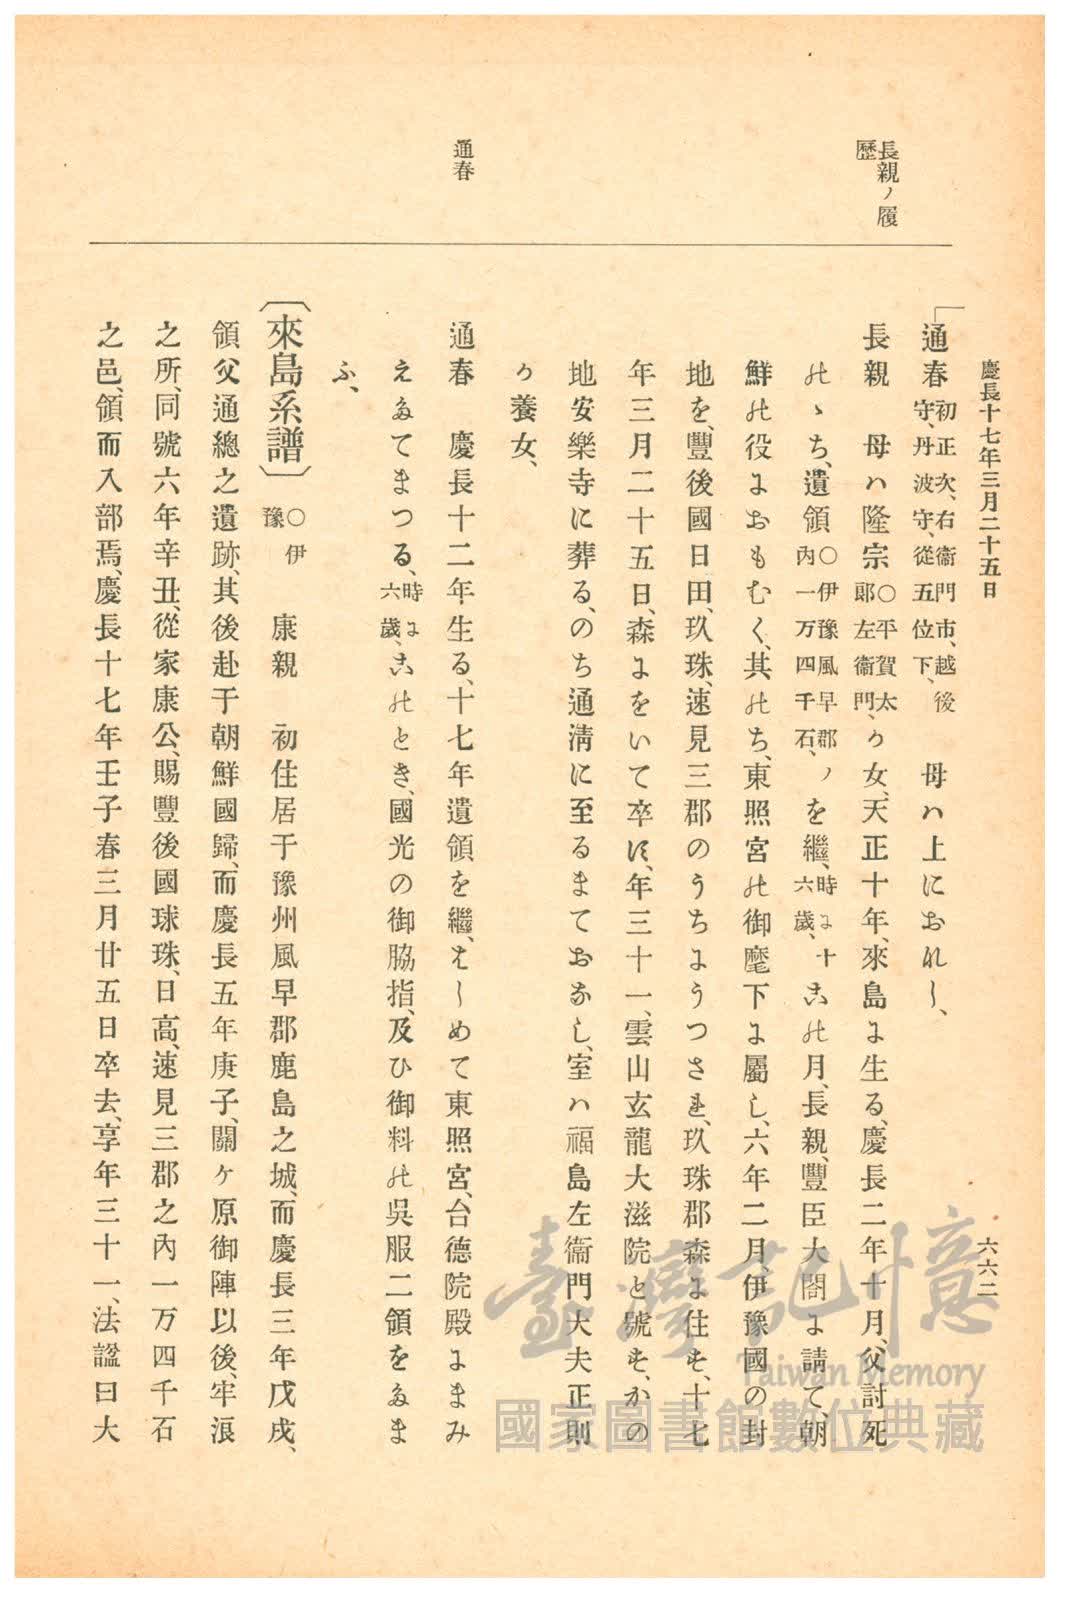 慶長十七年三月二十五日
六六二
長親ノ履歷
通春
通春 初正次、右衞門市、越後守、丹波守、從五位下、 母ハ上におれし、
長親 母ハ隆宗 〇平賀太郞左衞門、 か女、天正十年、來島に生る、慶長二年十月、父討死
のゝち、遺領 〇伊豫風早郡ノ內一万四千石、 を繼、時に十六歲、 この月、長親、豐臣大閤に請て、朝
鮮の役におもむく、其のち、東照宮の御麾下に屬し、六年二月、伊豫國の封
地を、豐後國日田、玖珠、速見三郡のうちにうつされ、玖珠郡森に住す、十七
年三月二十五日、森にをいて卒す、年三十一、雲山玄龍大滋院と號す、かの
地安樂寺に葬る、のち通淸に至るまておなし、室ハ福島左衞門大夫正則
か養女、
通春 慶長十二年生る、十七年遺領を繼、はしめて東照宮、台德院殿にまみ
えたてまつる、時に六歲、 このとき、國光の御脇指、及ひ御料の吳服二領をたま
ふ、
〔來島系譜〕 〇伊豫 康親 初住居于豫州風早郡鹿島之城、而慶長三年戊戌、
領父通總之遺跡、其後赴于朝鮮國歸、而慶長五年庚子、關ケ原御陣以後、牢浪
之所、同號六年辛丑、從家康公、賜豐後國球珠、日高、速見三郡之內一万四千石
之邑、領而入部焉、慶長十七年壬子春三月廿五日卒去、享年三十一、法謚曰大
臺灣記憶
Taiwan Memory
國家圖書館數位典藏